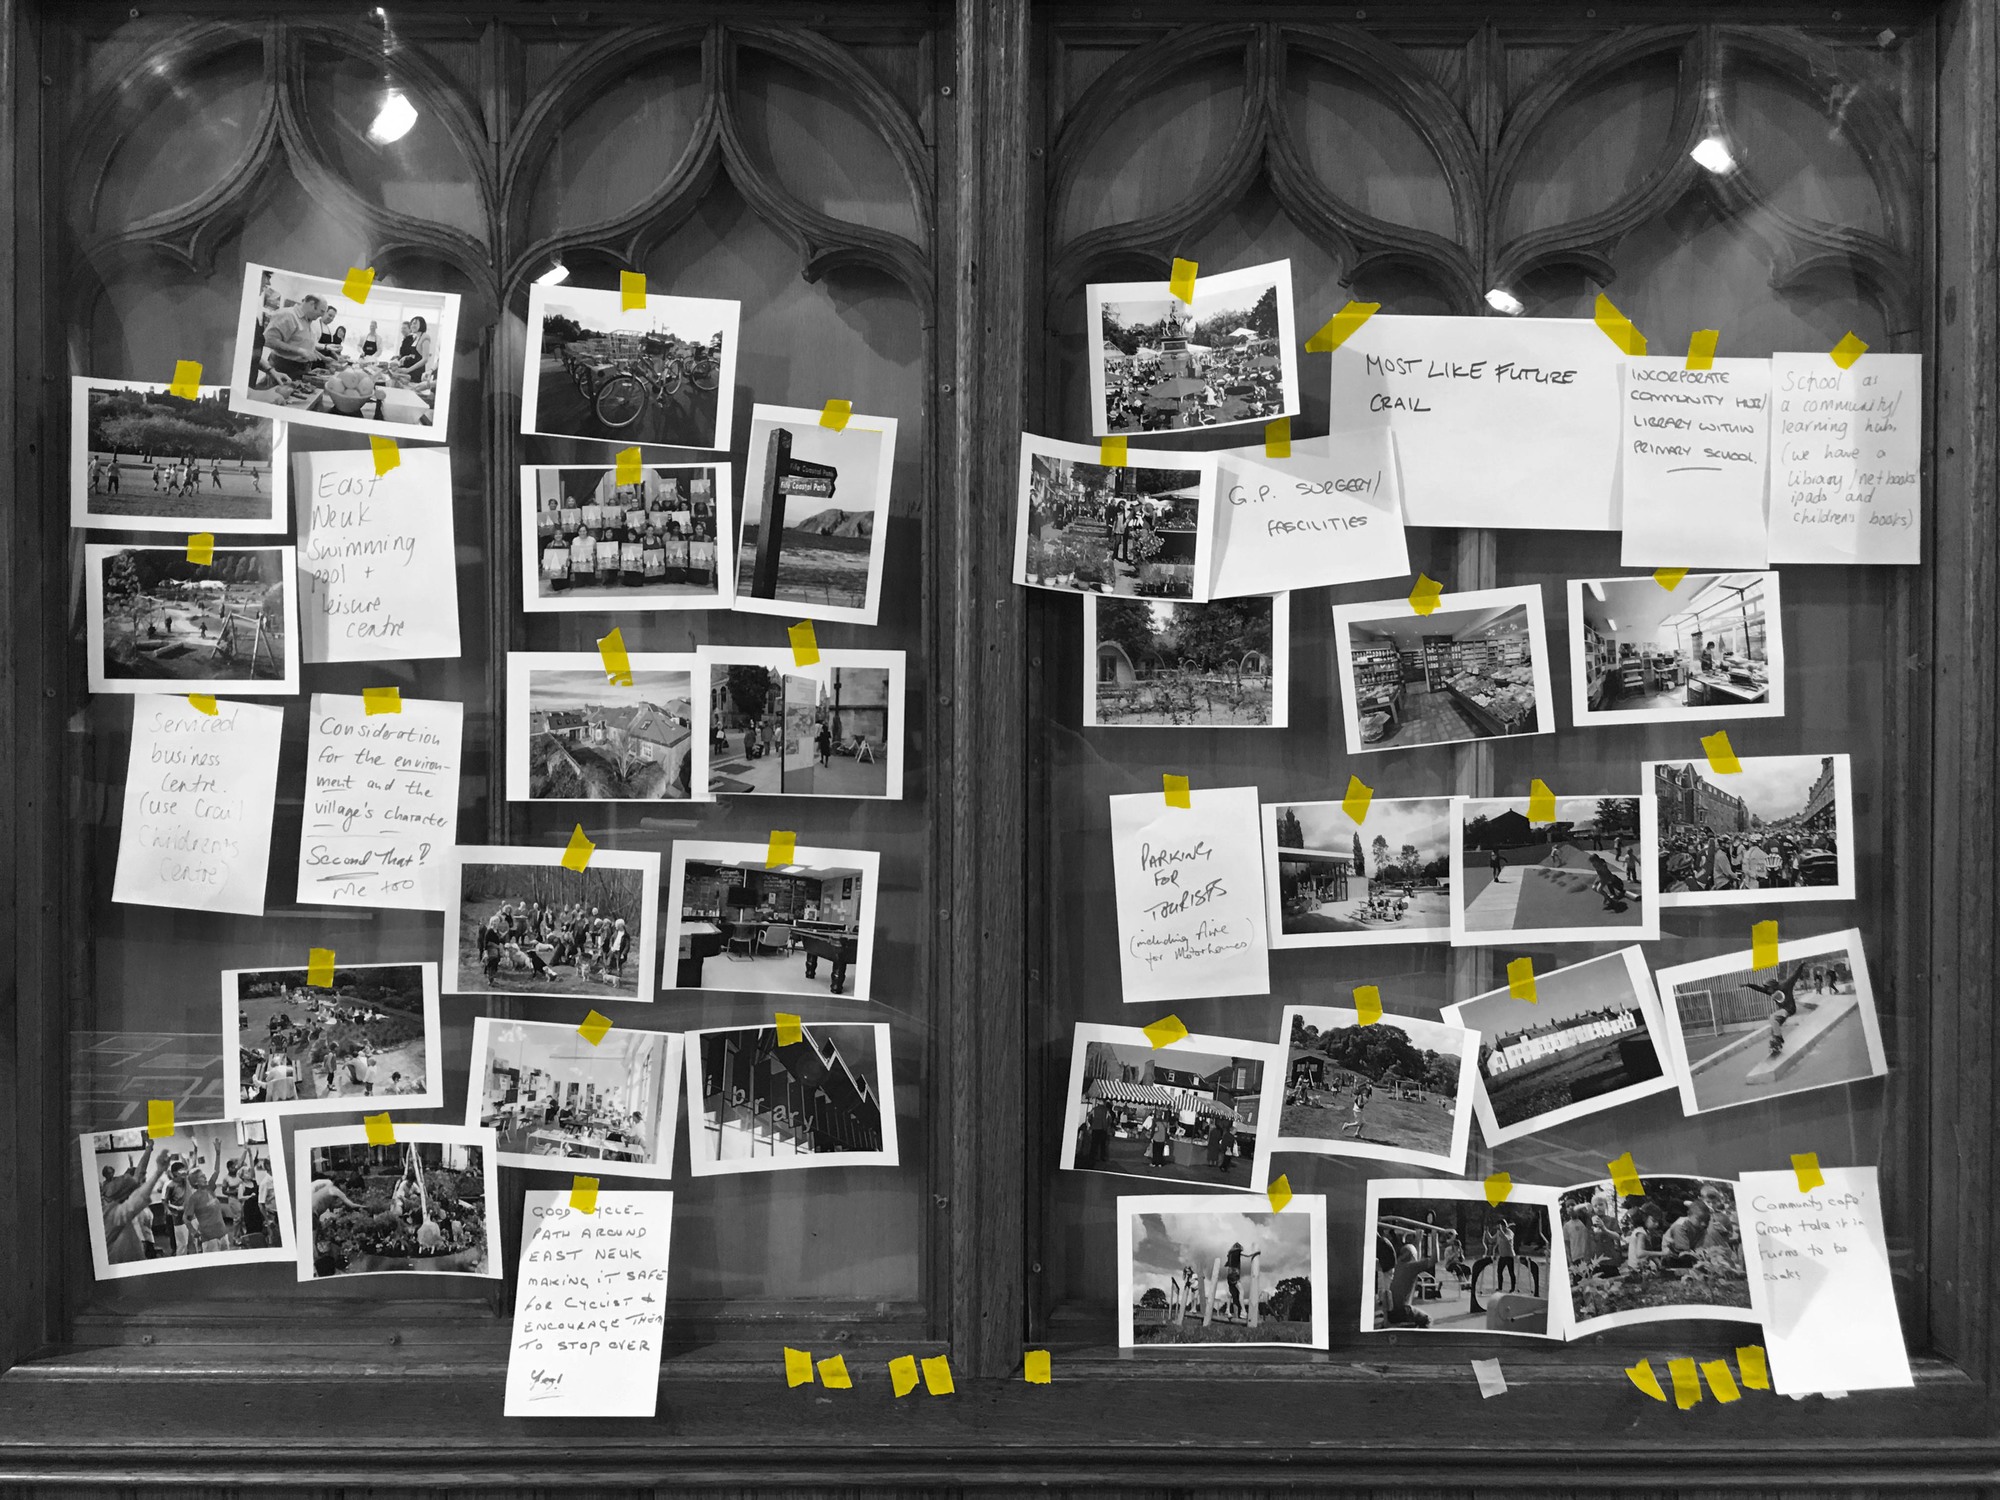 East
Neuk
Swimming
pool +
leisure
centre
Serviced
business
Centre.
(use Crail
Children's
Centre)
Consideration
for the environ-
ment and the
village's character
Second That!
me too
Fife Coastal Path
Fife Coastal Path
library
GOOD CYCLE-
PATH AROUND
EAST NEUK
MAKING IT SAFE
FOR CYCLIST &
ENCOURAGE THEM
TO STOP OVER
Yes!
MOST LIKE FUTURE
CRAIL
G.P. SURGERY/
FASCILITIES
INCORPORATE
COMMUNITY HUB/
LIBRARY WITHIN
PRIMARY SCHOOL.
School as
a community/
learning hub.
(we have a
library/netbooks
ipads and
children's books)
PARKING
FOR
TOURISTS
(including Aire
for Motorhomes)
Community café
Group take it in
turns to be
cooks